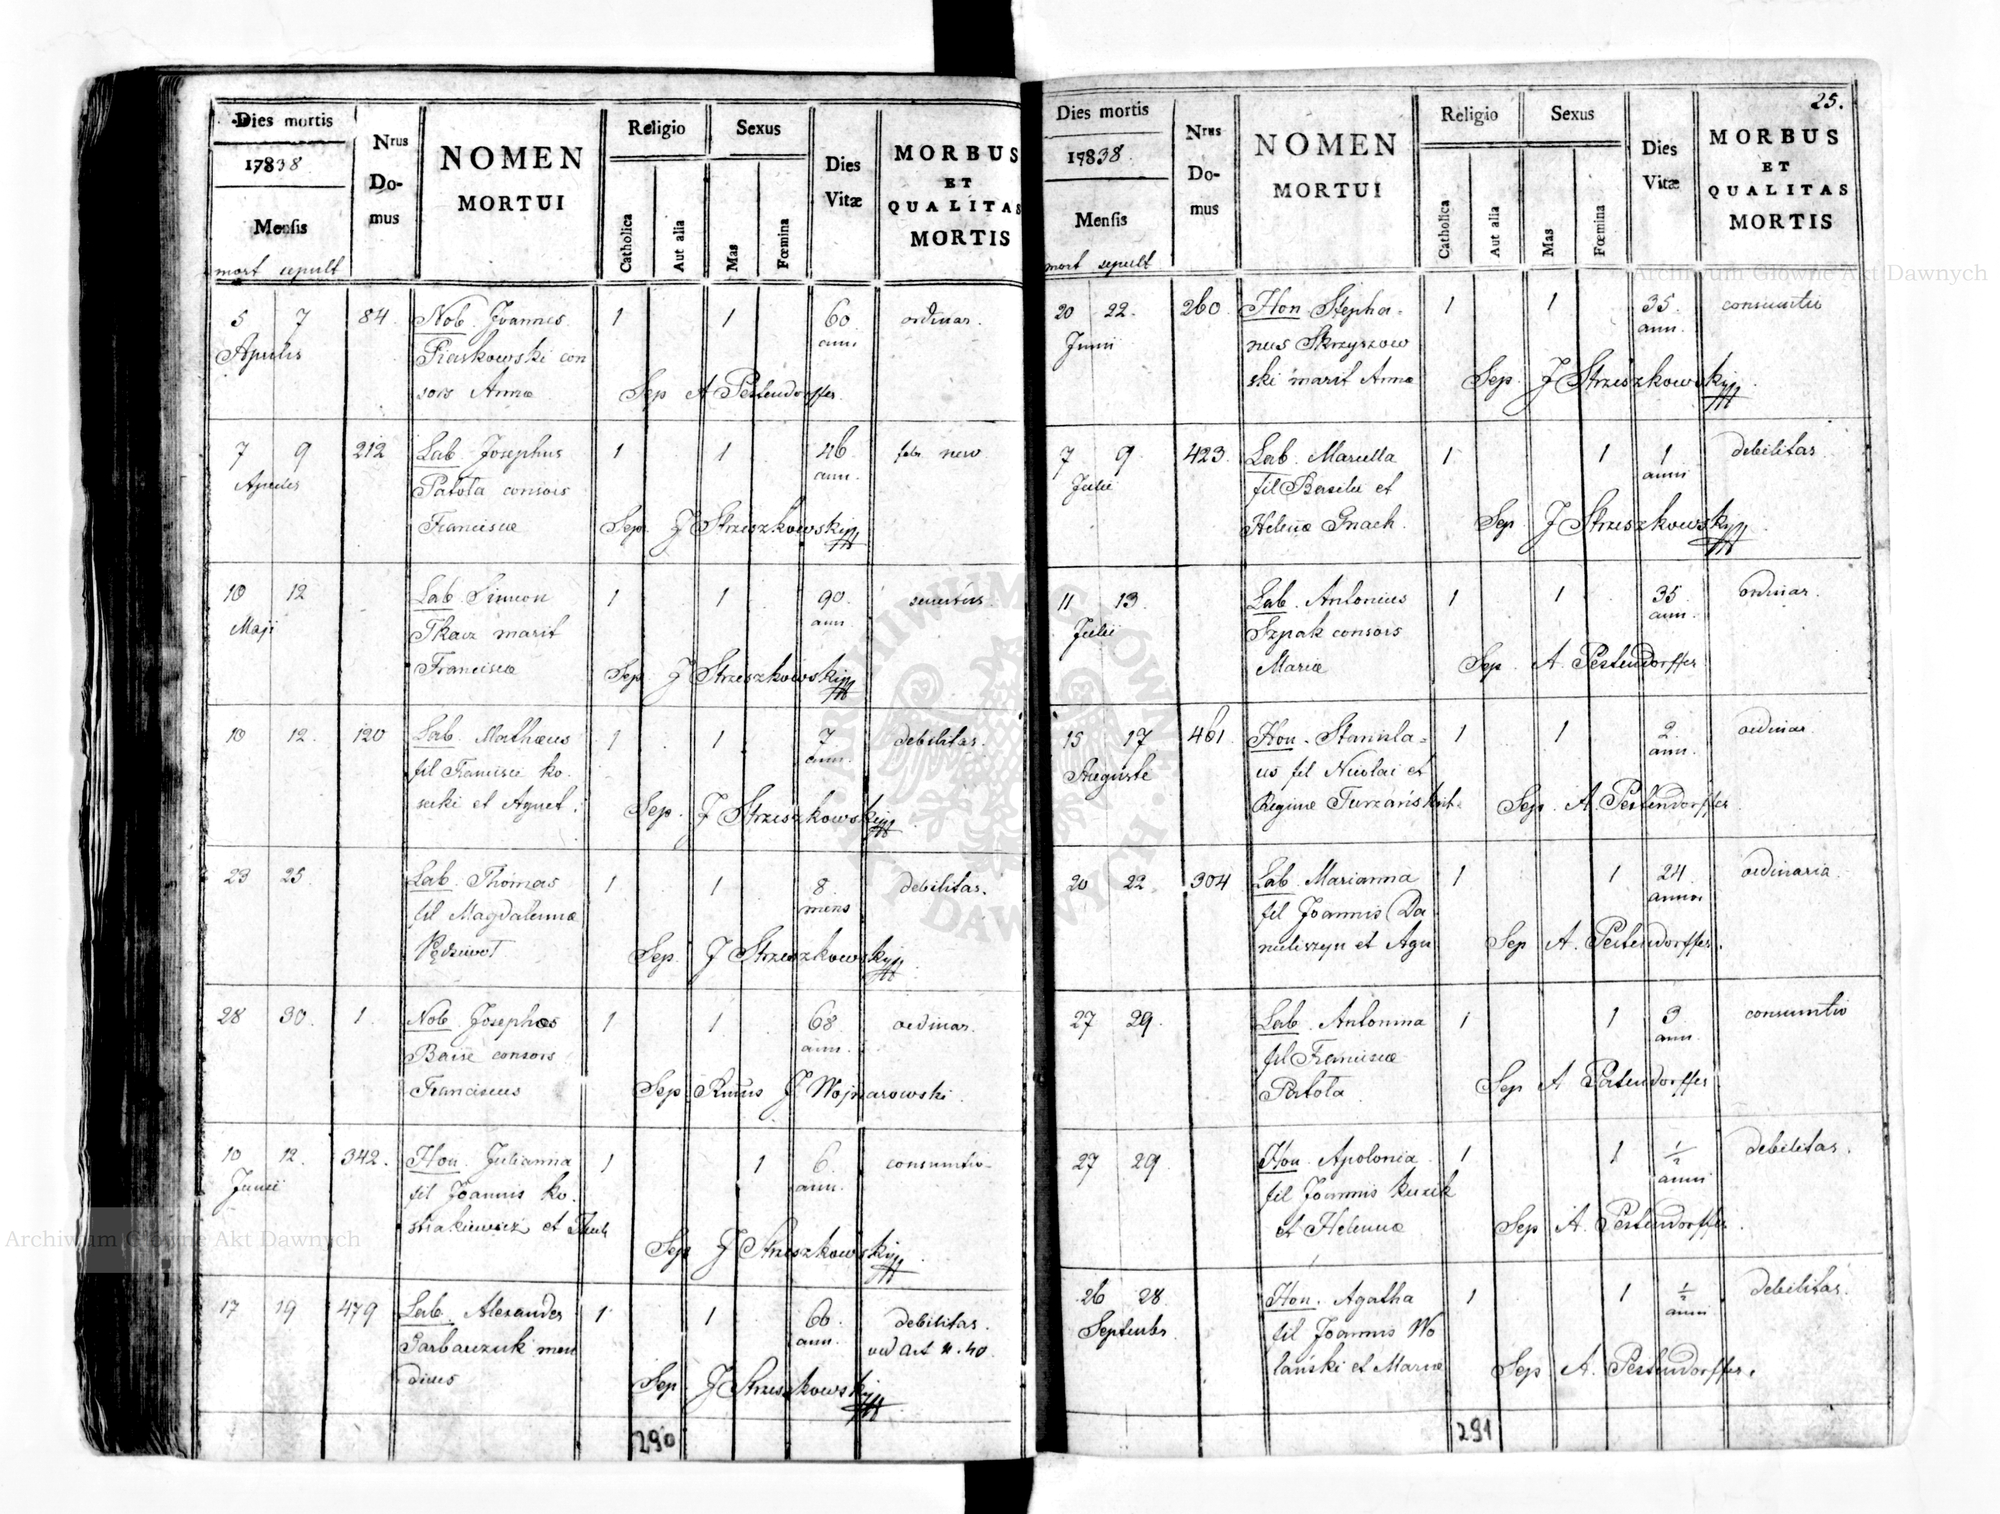 Dies mortis
Nrus Domus
NOMEN MORTUI
Religio
Sexus
Dies Vitæ
MORBUS ET QUALITAS MORTIS
17838
Mensis
Catholica
Aut alia
Mas
Fœmina
mort sepult
5 7 84. Nob. Joannes 1 1 60 ordinar.
Aprilis Piaskowski con ann
sors Annæ Sep A Pestendorffer.
7 9 212 Lab. Josephus 1 1 46 febr. nerv
Aprilis Patoła consors ann.
Franciscæ Sep. J Strzeszkowski
10 12 Lab. Simeon 1 1 90. senectus.
Maji Tkacz marit ann
Franciscæ Sep J Strzeszkowski
10 12. 120 Lab. Mathæus 1 1 7 debilitas.
fil Francisci Ko. ann.
sicki et Agnet. Sep. J Strzeszkowski
23 25. Lab. Thomas 1 1 8 debilitas.
fil Magdalennæ mens
Sep. J Strzeszkowski
28 30. 1. Nob. Josephus 1 1 68 ordinar.
consors ann.
Franciscus Sep. J Wojnarowski.
10 12. 342. Hon. Julianna 1 1 6. consumtio.
Junii fil Joannis Ko. ann.
stiakiewicz et Sep J Strzeszkowski
17 19 479 Lab. Alexander 1 1 60 debilitas.
Garbaczuk men ann. vid act N. 40.
dicus Sep. J Strzeszkowski
290
25.
Dies mortis
Nrus Domus
NOMEN MORTUI
Religio
Sexus
Dies Vitæ
MORBUS ET QUALITAS MORTIS
17838.
Mensis
Catholica
Aut alia
Mas
Fœmina
mort sepult
20 22. 260. Hon Stepha- 1 1 35. consumtio
Junii nus Skrzyszow ann.
ski marit Annæ Sep. J Strzeszkowski
7 9. 423. Lab. Marcella 1 1 1 debilitas.
Julii fil Basilii et anni
Helenæ Gnach. Sep J Strzeszkowski
11 13. Lab. Antonius 1 1 35. ordinar.
Julii Szpak consors ann.
Mariæ Sep. A. Pestendorffer
15 17 461. Hon. Stanisla- 1 1 2 ordinar.
Auguste us fil Nicolai et ann.
Reginæ Turzański Sep. A. Pestendorffer
20 22. 304 Lab. Marianna 1 1 24 ordinaria.
fil Joannis Da annor
niliszyn et Agn Sep A. Pestendorffer.
27 29. Lab. Antonina 1 1 3 consumtio
fil Franciscæ ann.
Patoła. Sep A Pestendorffer
27 29. Hon. Apolonia 1 1 ½ debilitas.
fil Joannis Kuzik anni
et Helennæ Sep A. Pestendorffer.
26 28. Hon. Agatha 1 1 ½ debilitas.
Septembr. fil Joannis Wo anni
lański et Mariæ Sep A. Pestendorffer.
291
Archiwum Główne Akt Dawnych
Archiwum Główne Akt Dawnych
ARCHIWUM GŁÓWNE AKT DAWNYCH